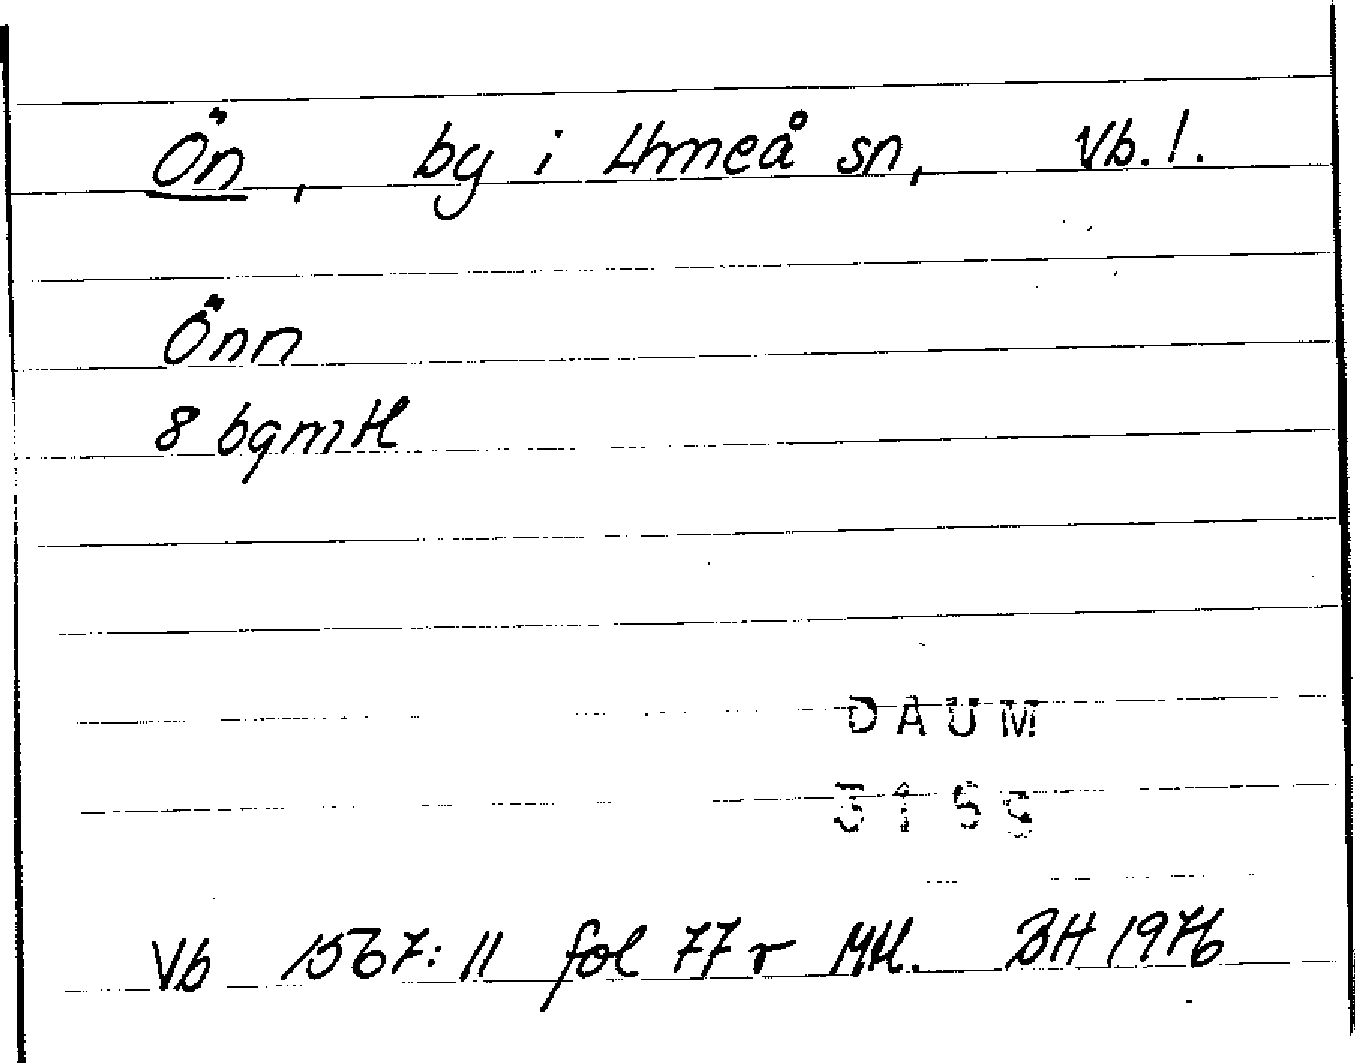 Ön, by i Umeå sn, Vb. l.
Önn
8 bgmtl
DAUM
Vb 1567:11 fol 77 r Mtl. BH 1976